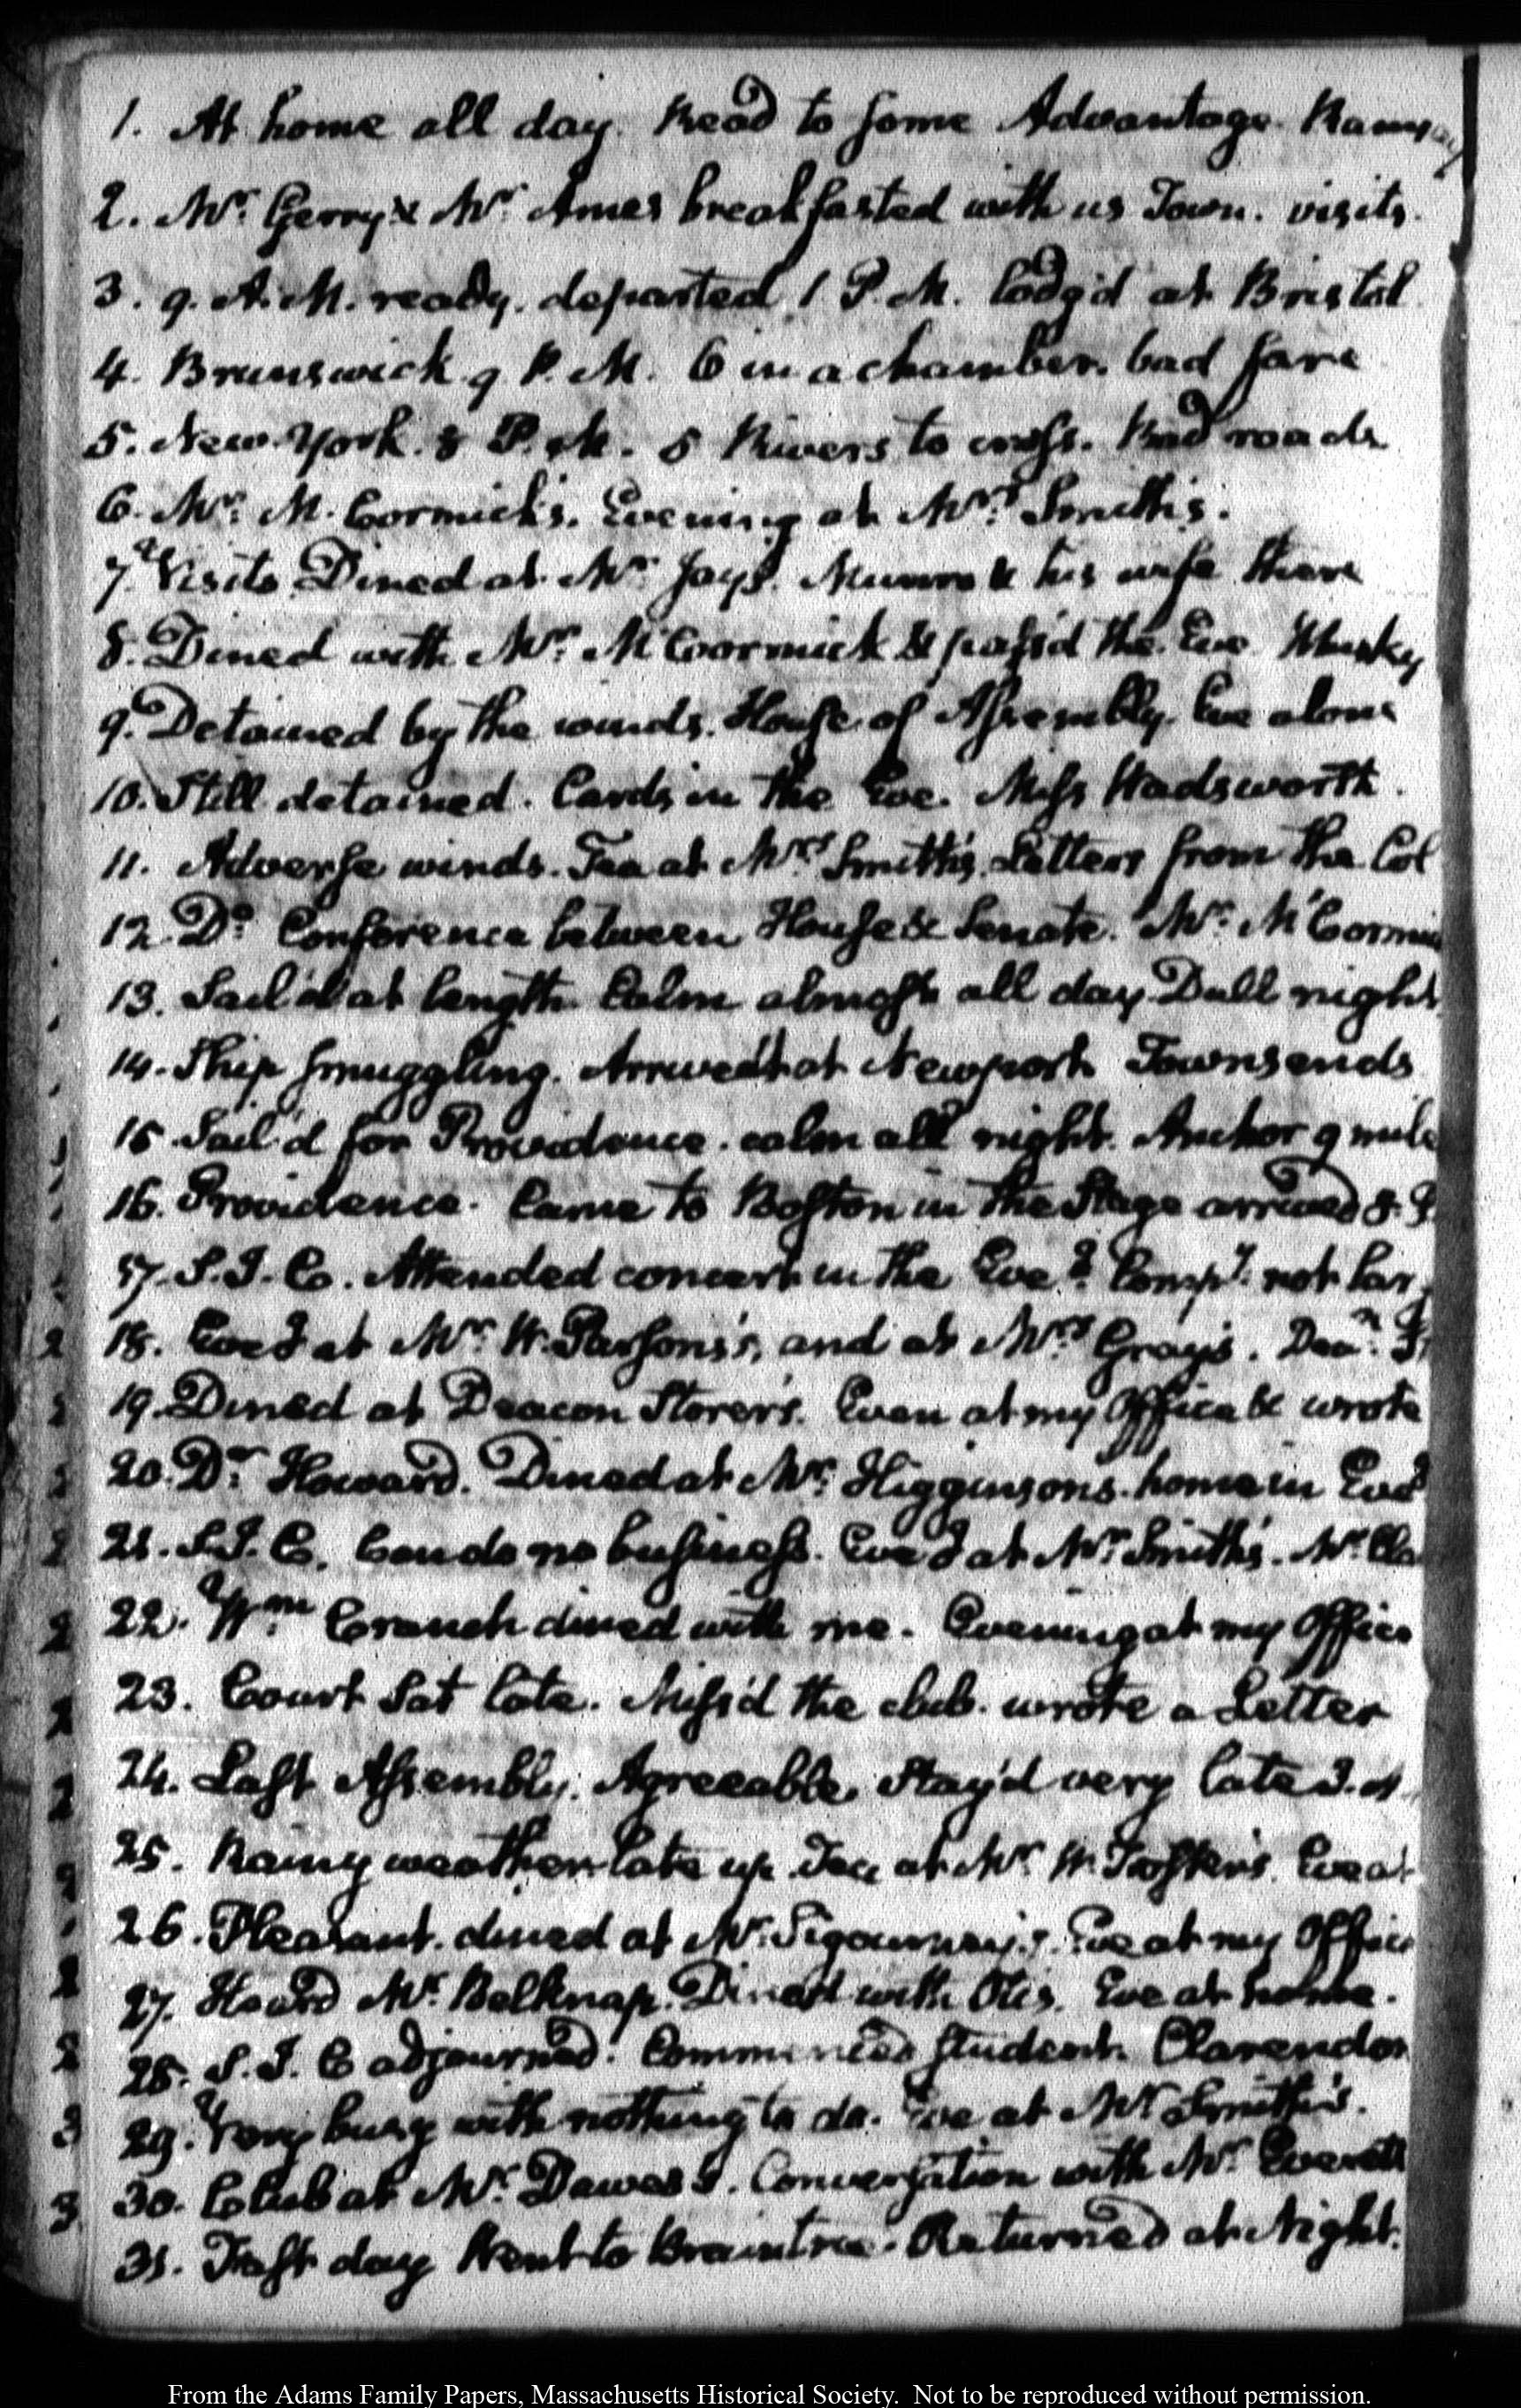 1. At home all day. Read to some Advantage. Ramsay
2. Mr. Gerry & Mr. Ames breakfasted with us Town. visits.
3. 9. A.M. ready. departed 1 P.M. lodg'd at Bristol
4. Brunswick 9 P.M. 6 in a chamber. bad fare
5. New York. 8 P.M. 5 Rivers to cross. Bad roads
6. Mr. M. Cormick's. Evening at Mrs. Smith's.
7. Visits Dined at Mr. Jay's. Munro & his wife there
8. Dined with Mr. McCormick & pass'd the Eve Whisky
9. Detained by the winds. House of Assembly. Eve alone
10. Still detained. Cards in the Eve. Miss Wadsworth.
11. Adverse winds. Tea at Mrs. Smith's. Letters from the Col
12. Do. Conference between House & Senate. Mr. McCormic
13. Sail'd at length. Calm almost all day Dull night
14. Ship smuggling. Arrived at Newport Townsends
15 Sail'd for Providence. calm all night. Anchor 9 mile
16. Providence. Came to Boston in the Stage arrived 8. P.
17. S.J.C. Attended concert in the Eveg. Compy. not lar
18. Eveg at Mr. W. Parsons's, and at Mrs. Gray's. Dean.
19. Dined at Deacon Storer's. Even at my Office & wrote
20. Dr. Howard. Dined at Mr. Higginsons. home in Eveg
21. S.J.C. Could do no business. Eveg at Mr. Smith's. Mr. Cla
22. Wm. Cranch dined with me. Evening at my Office
23. Court sat late. Miss'd the club. wrote a Letter
24. Last Assembly. Agreeable. Stay'd very late
25. Rainy weather late up. Tea at Mr. W. Foster's. Eve at
26. Pleasant. dined at Mr. Sigourney's. Eve at my Office
27. Heard Mr. Belknap. Dined with Otis. Eve at home.
28. S.J.C adjourned. Commenced student. Clarendon
29. Very busy with nothing to do. Eve at Mr. Smith's.
30. Club at Mr. Dawes's. Conversation with Mr. Everett
31. Fast day Went to Braintree. Returned at Night.
From the Adams Family Papers, Massachusetts Historical Society. Not to be reproduced without permission.